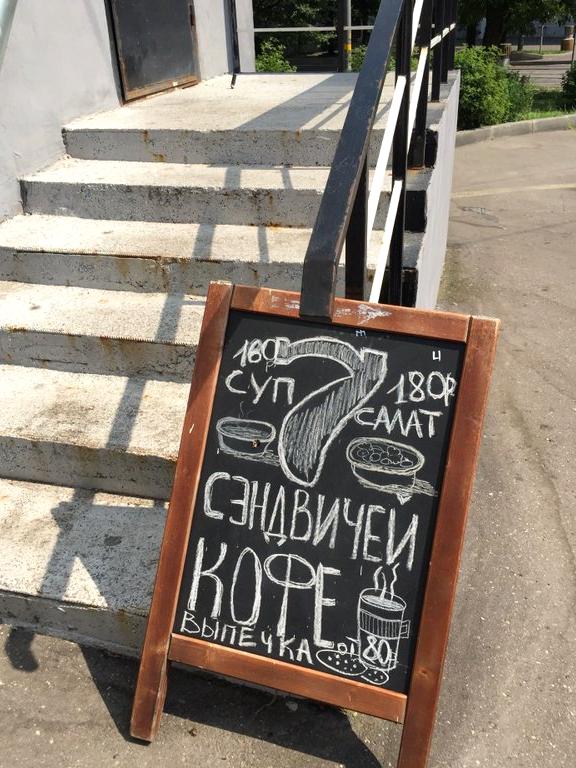 160 7 180₽
СУП САЛАТ
СЭНДВИЧЕЙ
КОФЕ
ВЫПЕЧКА ОТ 80